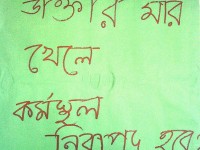 ডাক্তার মার
খেলে
কর্মস্থল
নিরাপদ হবে?